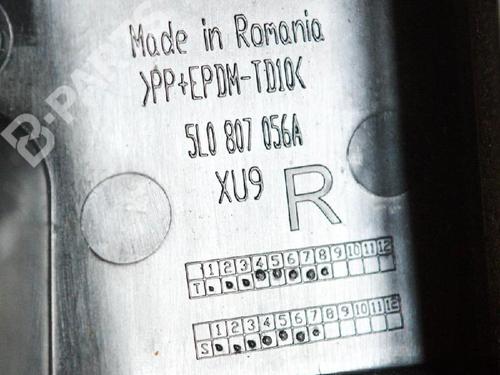 Made in Romania
>PP+EPDM-TD10<
5L0 807 056A
XU9 R
1 2 3 4 5 6 7 8 9 10 11 12
T
1 2 3 4 5 6 7 8 9 10 11 12
S
B-PARTS